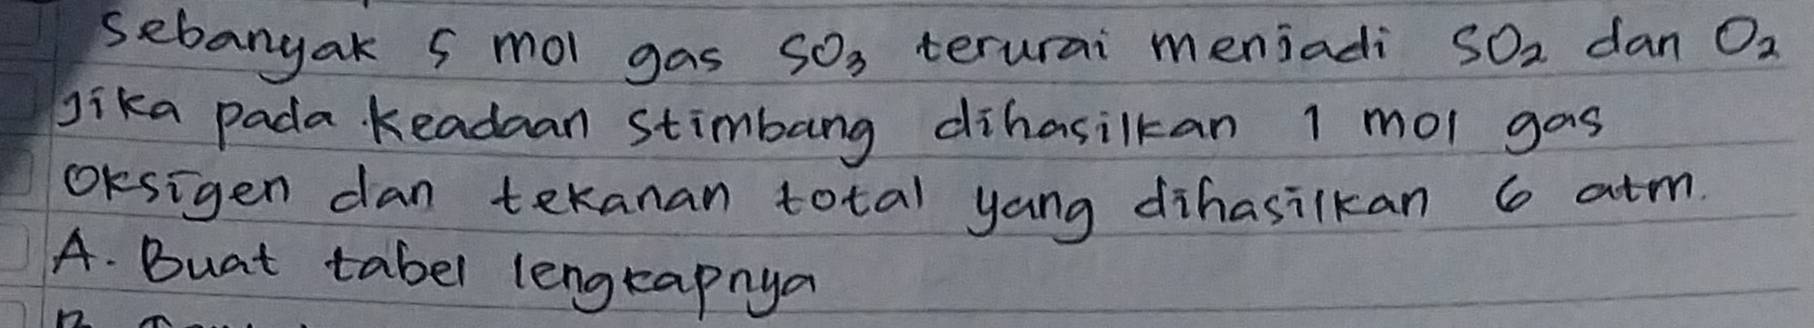 Sebanyak 5 mol gas SO₃ terurai menjadi SO₂ dan O₂
Jika pada keadaan stimbang dihasilkan 1 mol gas
oksigen dan tekanan total yang dihasilkan 6 atm.
A. Buat tabel lengkapnya